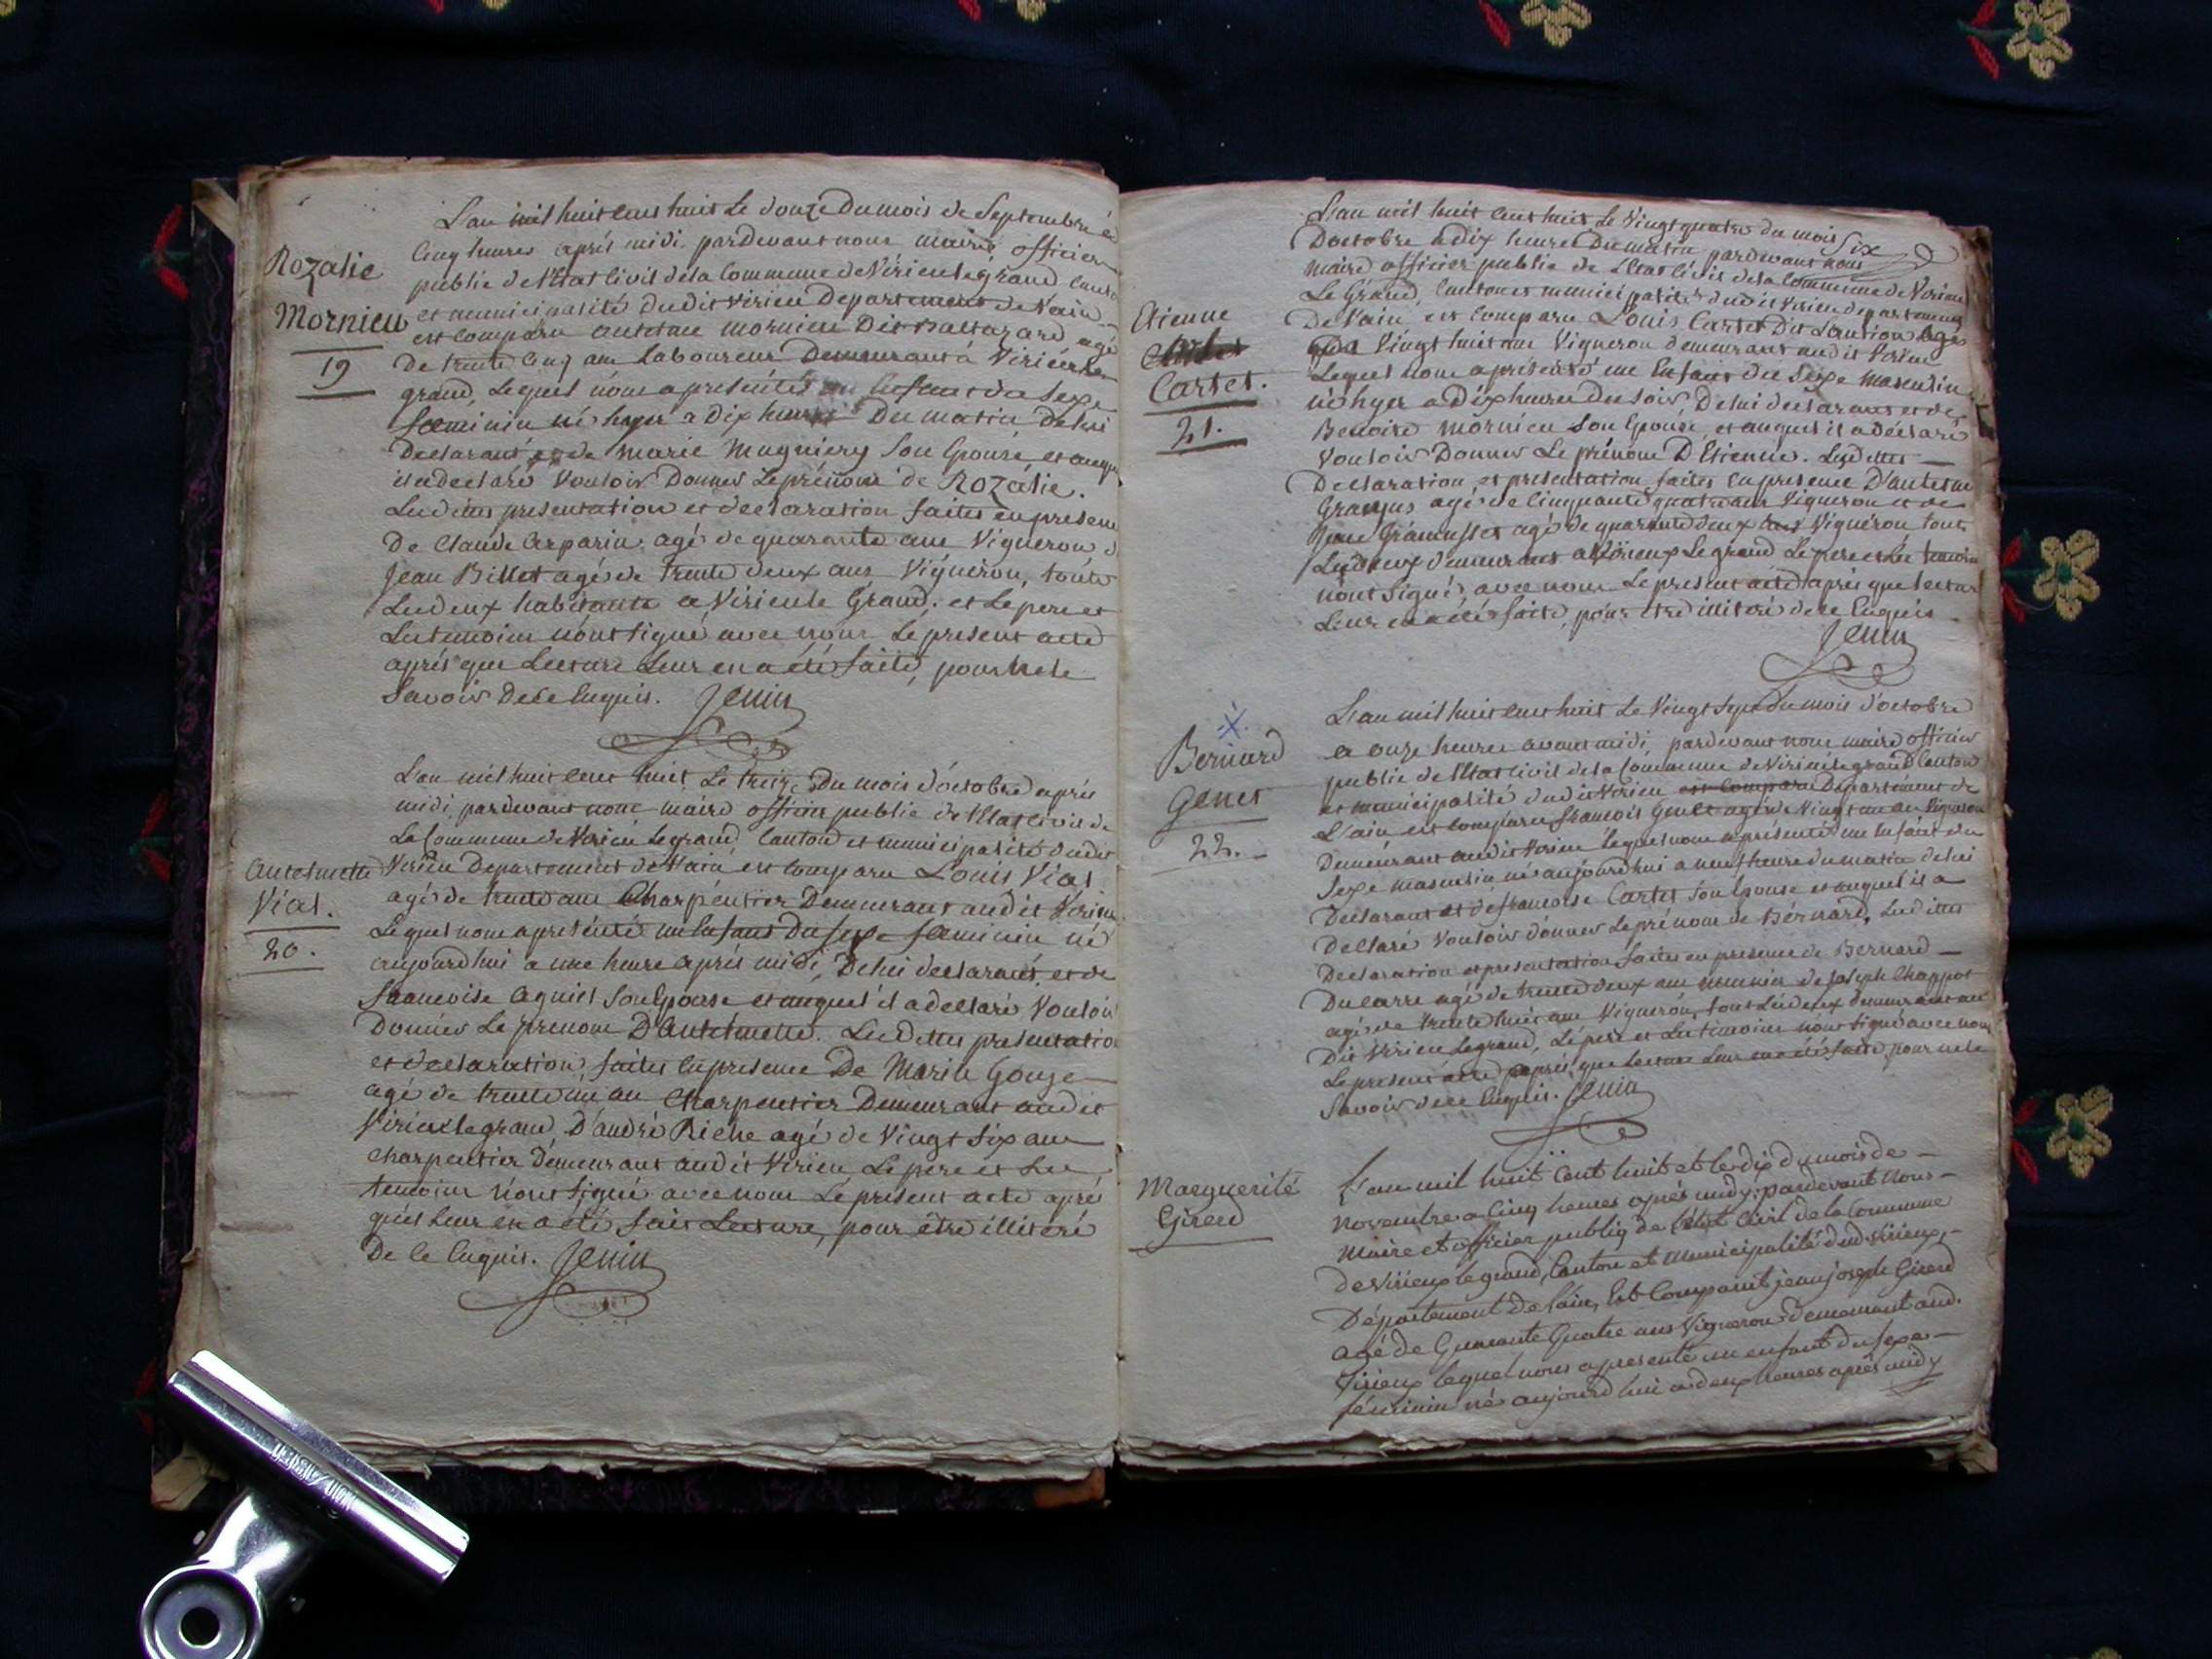 Rozalie
Mornieu
19
L'an mil huit cent huit Le douze Du mois de Septembre à
Cinq heures après midi pardevant nous maire officier
public de l'Etat Civil de la Commune de Virieu le grand Canton
et municipalité dudit Virieu Departement de l'ain
est comparu antelme mornieu Dit Baltazard agé
De trente Cinq ans Laboureur Demeurant à Virieu le
grand, Lequel nous a presenté un Enfant du Sexe
feminin né hyer a Dix heures Du matin De lui
Declarant et de marie Mugniery Son Epouse, et auquel
il a declaré Vouloir Donner Le prénom de Rozalie.
Lesdittes presentation et declaration faites en presence
De Claude Carparin agé de quarante ans Vigneron
Jean Billet agé de trente deux ans Vigneron, touts
Les deux habitants a Virieu le Grand. et Le pere et
Les temoins n'ont signé avec nous Le present acte
après que Lecture Leur en a été faite, pour ne le
Savoir De ce Enquis. Jenin
Antelmette
Vial.
20.
L'an mil huit cent huit Le treize Du mois d'octobre après
midi, pardevant nous maire officier public de l'Etat civil de
La Commune de Virieu Le grand, Canton et municipalité dudit
Virieu Departement de l'ain est comparu Louis Vial
agé de trente ans Charpentier Demeurant audit Virieu
Lequel nous a presenté un Enfant Du sexe feminin né
aujourd'hui a une heure après midi, De lui declarant, et de
francoise Son Epouse et auquel il a declaré Vouloir
Donner Le prenom D'Antelmette. Lesdittes presentation
et declaration, faites En presence De Marin Gouge
agé de trente un an Charpentier Demeurant audit
Virieux le grand, D'andré Riche agé de Vingt Six ans
Charpentier Demeurant audit Virieu Le pere et Les
temoins n'ont signé avec nous Le présent acte après
qu'il Leur en a été fait Lecture, pour être illitéré
De ce Enquis. Jenin
Etienne
Cartet.
21.
L'an mil huit cent huit Le Vingt quatre du mois
D'octobre a dix heures Du matin pardevant nous
maire officier public de l'Etat Civil de la Commune de Virieu
Le Grand, Canton et municipalité dudit Virieu departement
De l'ain est comparu Louis Cartet Dit Santion agé
Vingt huit ans Vigneron demeurant audit Virieu
Lequel nous a présenté un Enfant du Sexe masculin
né hyer a dix heures du soir, De lui declarant et de
Benoite Mornieu Son Epouse, et auquel il a déclaré
Vouloir Donner Le prénom D'Etienne. Lesdittes
Declaration et presentation faites En presence D'antelme
agé de Cinquante quatre ans Vigneron et de
agé de quarante deux ans Vigneron touts
Les Deux demeurants a Virieux Le grand Le pere et Les temoins
n'ont signé, avec nous Le present acte après que lecture
Leur en a été faite, pour être illitéré de ce Enquis
Jenin
Bernard
Genet
22.
L'an mil huit cent huit Le Vingt sept du mois d'octobre
a onze heures avant midi, pardevant nous maire officier
public de l'Etat civil de la Commune de Virieu le grand Canton
et municipalité dudit Virieu est comparu Departement de
L'ain est comparu francois Genet agé de Vingt un an Vigneron
Demeurant audit Virieu Lequel nous a presenté un Enfant du
Sexe masculin né aujourd'hui a neuf heures du matin de lui
Declarant et de francoise Cartet Son Epouse et auquel il a
Declaré Vouloir donner Le prénom de Bernard, Lesdittes
Declaration et presentation faites en presence de Bernard
Ducarre agé de trente deux ans de Joseph Chappot
agé de trente huit ans Vigneron, tout Les deux demeurant au
Dit Virieu Legrand, Le pere et Les temoins n'ont signé avec nous
Le present acte après que Lecture Leur en a été faite, pour ne le
Savoir de ce Enquis. Jenin
Marguerite
Girerd
L'an mil huit Cent huit et le dix du mois de
novembre a Cinq heures après midy; pardevant nous
Maire et officier public de l'Etat Civil de la Commune
de Virieux le grand, Canton et municipalité dud. Virieux,
Département de l'ain, Est Comparut jean joseph Girerd
agé de Quarante Quatre ans Vigneron Demeurant aud.
Virieux lequel nous a presenté un enfant du sexe
féminin né aujourd'hui a deux heures après midy